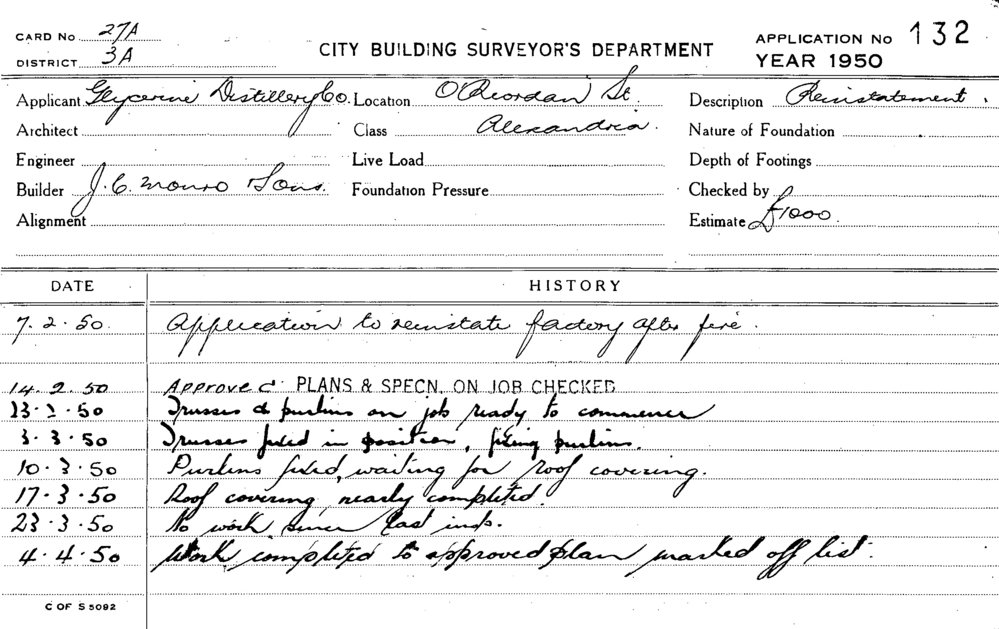 CARD No 27A
DISTRICT 3A
CITY BUILDING SURVEYOR'S DEPARTMENT
APPLICATION No 132
YEAR 1950
Applicant Glycerine Distillery Co. Location O'Riordan St. Description Reinstatement.
Architect Class Alexandria. Nature of Foundation
Engineer Live Load Depth of Footings
Builder J. C. Monro & Sons. Foundation Pressure Checked by
Alignment Estimate £1000.
DATE HISTORY
7.2.50. Application to reinstate factory after fire.
14.2.50 Approved PLANS & SPECN. ON JOB CHECKED
23.2.50 Trusses & purlins on job ready to commence
3.3.50 Trusses fixed in position, fixing purlins.
10.3.50 Purlins fixed, waiting for roof covering.
17.3.50 Roof covering nearly completed.
23.3.50 No work since last insp.
4.4.50 Work completed to approved plan marked off list.
C OF S 5092